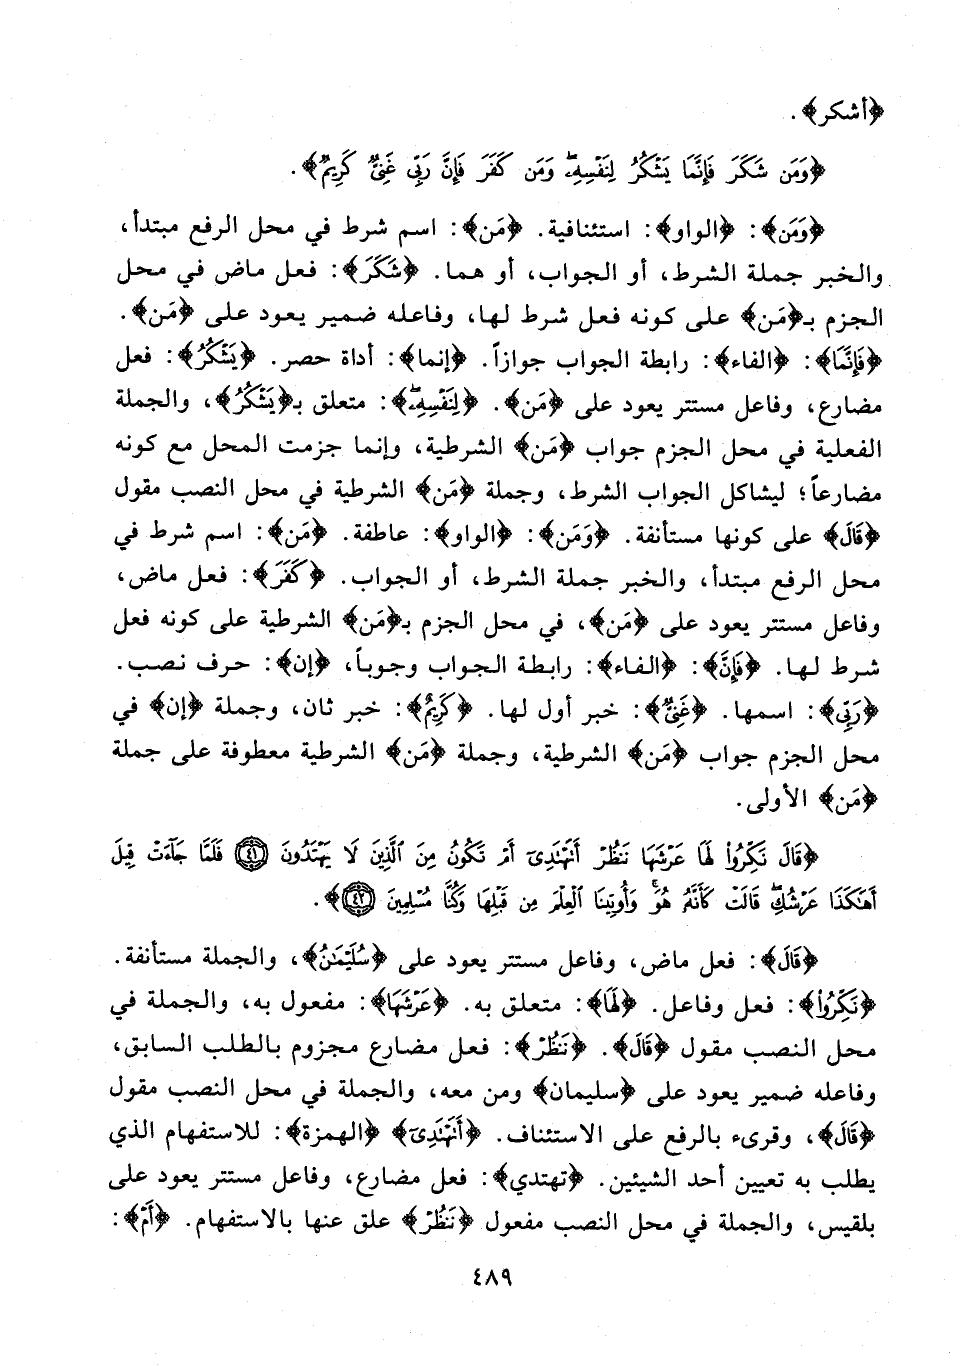 ﴿أشكر﴾.
﴿وَمَن شَكَرَ فَإِنَّمَا يَشْكُرُ لِنَفْسِهِۦۖ وَمَن كَفَرَ فَإِنَّ رَبِّى غَنِىٌّ كَرِيمٌ﴾.
﴿وَمَن﴾: ﴿الواو﴾: استئنافية. ﴿مَن﴾: اسم شرط في محل الرفع مبتدأ،
والخبر جملة الشرط، أو الجواب، أو هما. ﴿شَكَرَ﴾: فعل ماض في محل
الجزم بـ﴿مَن﴾ على كونه فعل شرط لها، وفاعله ضمير يعود على ﴿مَن﴾.
﴿فَإِنَّمَا﴾: ﴿الفاء﴾: رابطة الجواب جوازاً. ﴿إنما﴾: أداة حصر. ﴿يَشْكُرُ﴾: فعل
مضارع، وفاعل مستتر يعود على ﴿مَن﴾. ﴿لِنَفْسِهِۦۖ﴾: متعلق بـ﴿يَشْكُرُ﴾، والجملة
الفعلية في محل الجزم جواب ﴿مَن﴾ الشرطية، وإنما جزمت المحل مع كونه
مضارعاً؛ ليشاكل الجواب الشرط، وجملة ﴿مَن﴾ الشرطية في محل النصب مقول
﴿قَالَ﴾ على كونها مستأنفة. ﴿وَمَن﴾: ﴿الواو﴾: عاطفة. ﴿مَن﴾: اسم شرط في
محل الرفع مبتدأ، والخبر جملة الشرط، أو الجواب. ﴿كَفَرَ﴾: فعل ماض،
وفاعل مستتر يعود على ﴿مَن﴾، في محل الجزم بـ﴿مَن﴾ الشرطية على كونه فعل
شرط لها. ﴿فَإِنَّ﴾: ﴿الفاء﴾: رابطة الجواب وجوباً، ﴿إن﴾: حرف نصب.
﴿رَبِّى﴾: اسمها. ﴿غَنِىٌّ﴾: خبر أول لها. ﴿كَرِيمٌ﴾: خبر ثان، وجملة ﴿إن﴾ في
محل الجزم جواب ﴿مَن﴾ الشرطية، وجملة ﴿مَن﴾ الشرطية معطوفة على جملة
﴿مَن﴾ الأولى.
﴿قَالَ نَكِّرُوا۟ لَهَا عَرْشَهَا نَنظُرْ أَتَهْتَدِىٓ أَمْ تَكُونُ مِنَ ٱلَّذِينَ لَا يَهْتَدُونَ ٤١ فَلَمَّا جَآءَتْ قِيلَ
أَهَٰكَذَا عَرْشُكِۖ قَالَتْ كَأَنَّهُۥ هُوَۚ وَأُوتِينَا ٱلْعِلْمَ مِن قَبْلِهَا وَكُنَّا مُسْلِمِينَ ٤٢﴾.
﴿قَالَ﴾: فعل ماض، وفاعل مستتر يعود على ﴿سُلَيْمَٰنُ﴾، والجملة مستأنفة.
﴿نَكِّرُوا۟﴾: فعل وفاعل. ﴿لَهَا﴾: متعلق به. ﴿عَرْشَهَا﴾: مفعول به، والجملة في
محل النصب مقول ﴿قَالَ﴾. ﴿نَنظُرْ﴾: فعل مضارع مجزوم بالطلب السابق،
وفاعله ضمير يعود على ﴿سليمان﴾ ومن معه، والجملة في محل النصب مقول
﴿قَالَ﴾، وقرىء بالرفع على الاستئناف. ﴿أَتَهْتَدِىٓ﴾ ﴿الهمزة﴾: للاستفهام الذي
يطلب به تعيين أحد الشيئين. ﴿تهتدي﴾: فعل مضارع، وفاعل مستتر يعود على
بلقيس، والجملة في محل النصب مفعول ﴿نَنظُرْ﴾ علق عنها بالاستفهام. ﴿أَمْ﴾:
٤٨٩